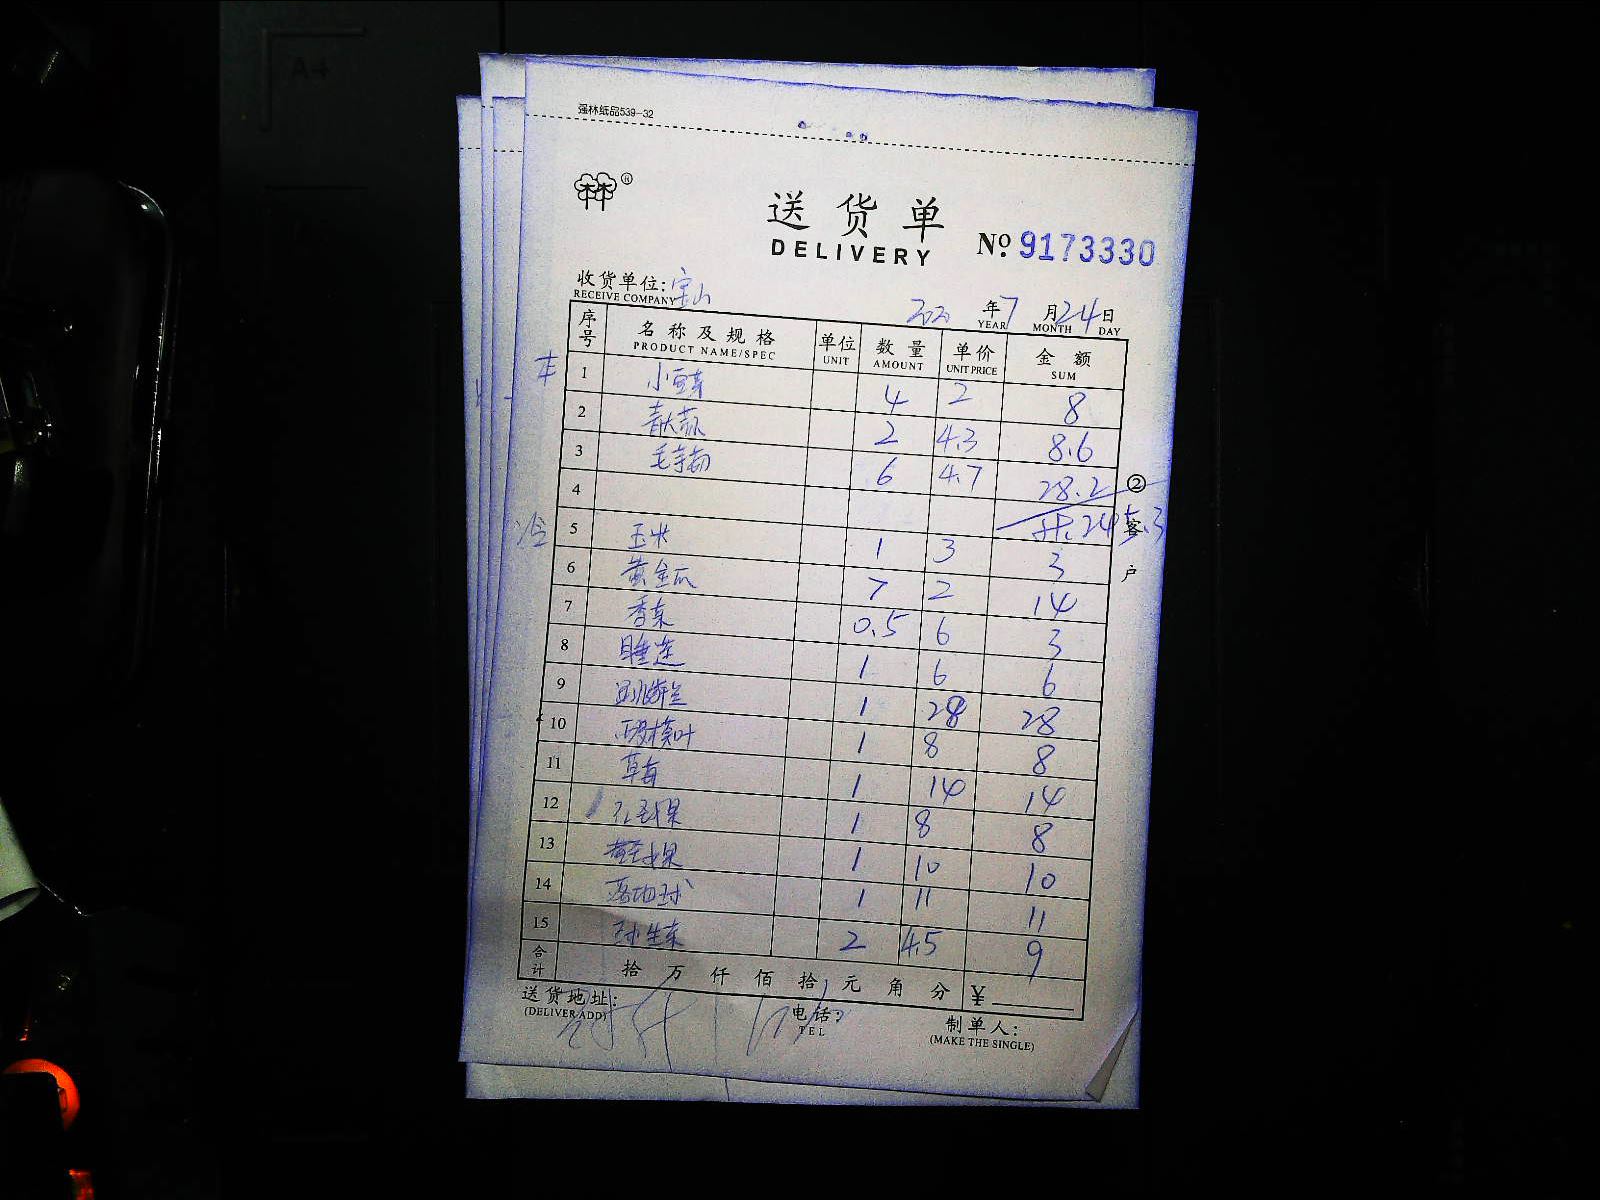 A4
强林纸品539-32
林®
送货单
DELIVERY
№ 9173330
收货单位: 宝山
RECEIVE COMPANY
年7月24日
YEAR MONTH DAY
序号 名称及规格 单位 数量 单价 金额
PRODUCT NAME/SPEC UNIT AMOUNT UNIT PRICE SUM
1 小豆芽 4 2 8
2 2 4.3 8.6
3 毛豆 6 4.7 28.2
4 共:245.3
冷 5 玉米 1 3 3
6 黄金瓜 7 2 14
7 香菜 0.5 6 3
8 睡莲 1 6 6
9 1 28 28
10 1 8 8
11 草莓 1 14 14
12 1 8 8
13 1 10 10
14 1 11 11
15 球生菜 2 4.5 9
合计 拾 万 仟 佰 拾 元 角 分 ¥
② 客户
送货地址: 电话: 制单人:
(DELIVER ADD) TEL (MAKE THE SINGLE)